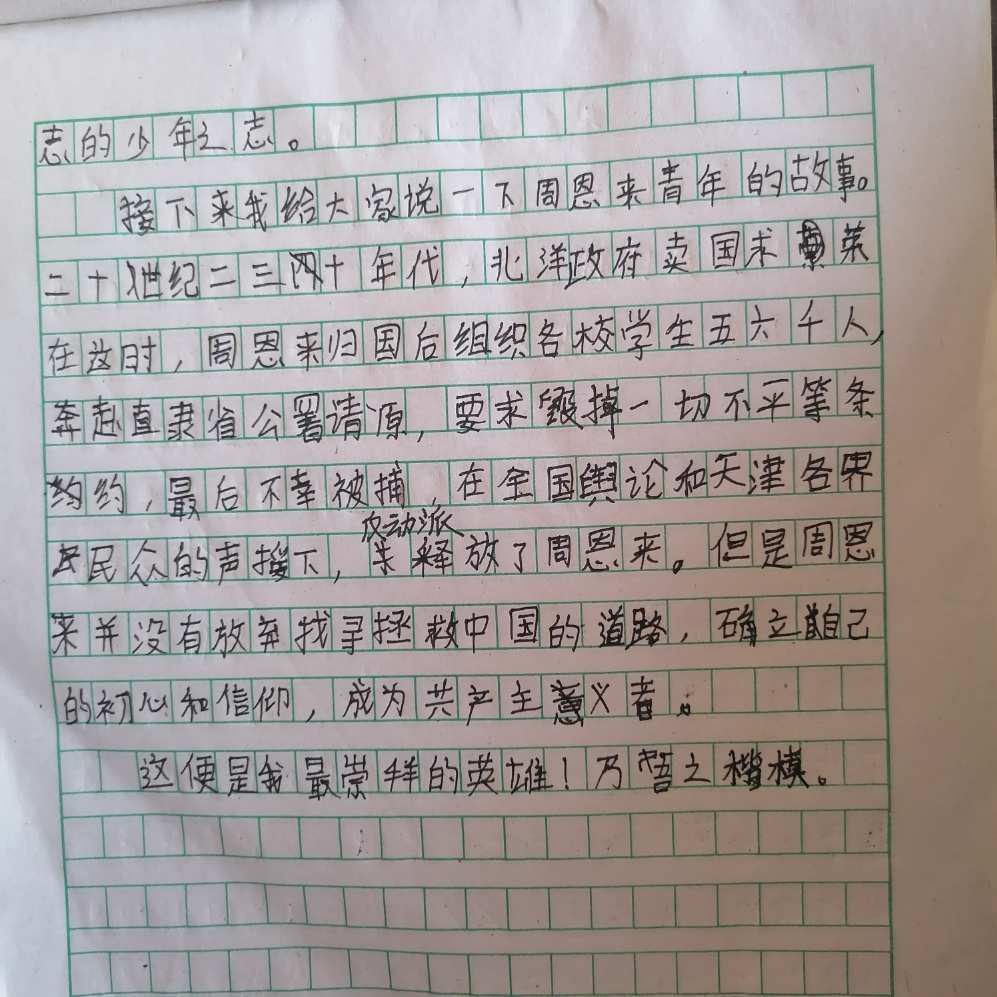 志的少年之志。
接下来我给大家说一下周恩来青年的故事。
二十世纪二三四十年代，北洋政府卖国求荣
在这时，周恩来归国后组织各校学生五六千人，
奔赴直隶省公署请源，要求毁掉一切不平等条
约，最后不幸被捕，在全国舆论和天津各界
民众的声援下，反动派释放了周恩来。但是周恩
来并没有放弃找寻拯救中国的道路，确立自己
的初心和信仰，成为共产主义者。
这便是我最崇拜的英雄！乃吾之楷模。